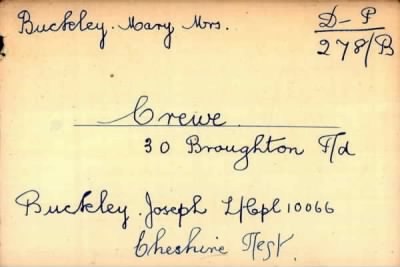 Buckley. Mary Mrs.
D-P
278/B
Crewe.
30 Broughton Rd
Buckley. Joseph L/Cpl 10066
Cheshire Regt.